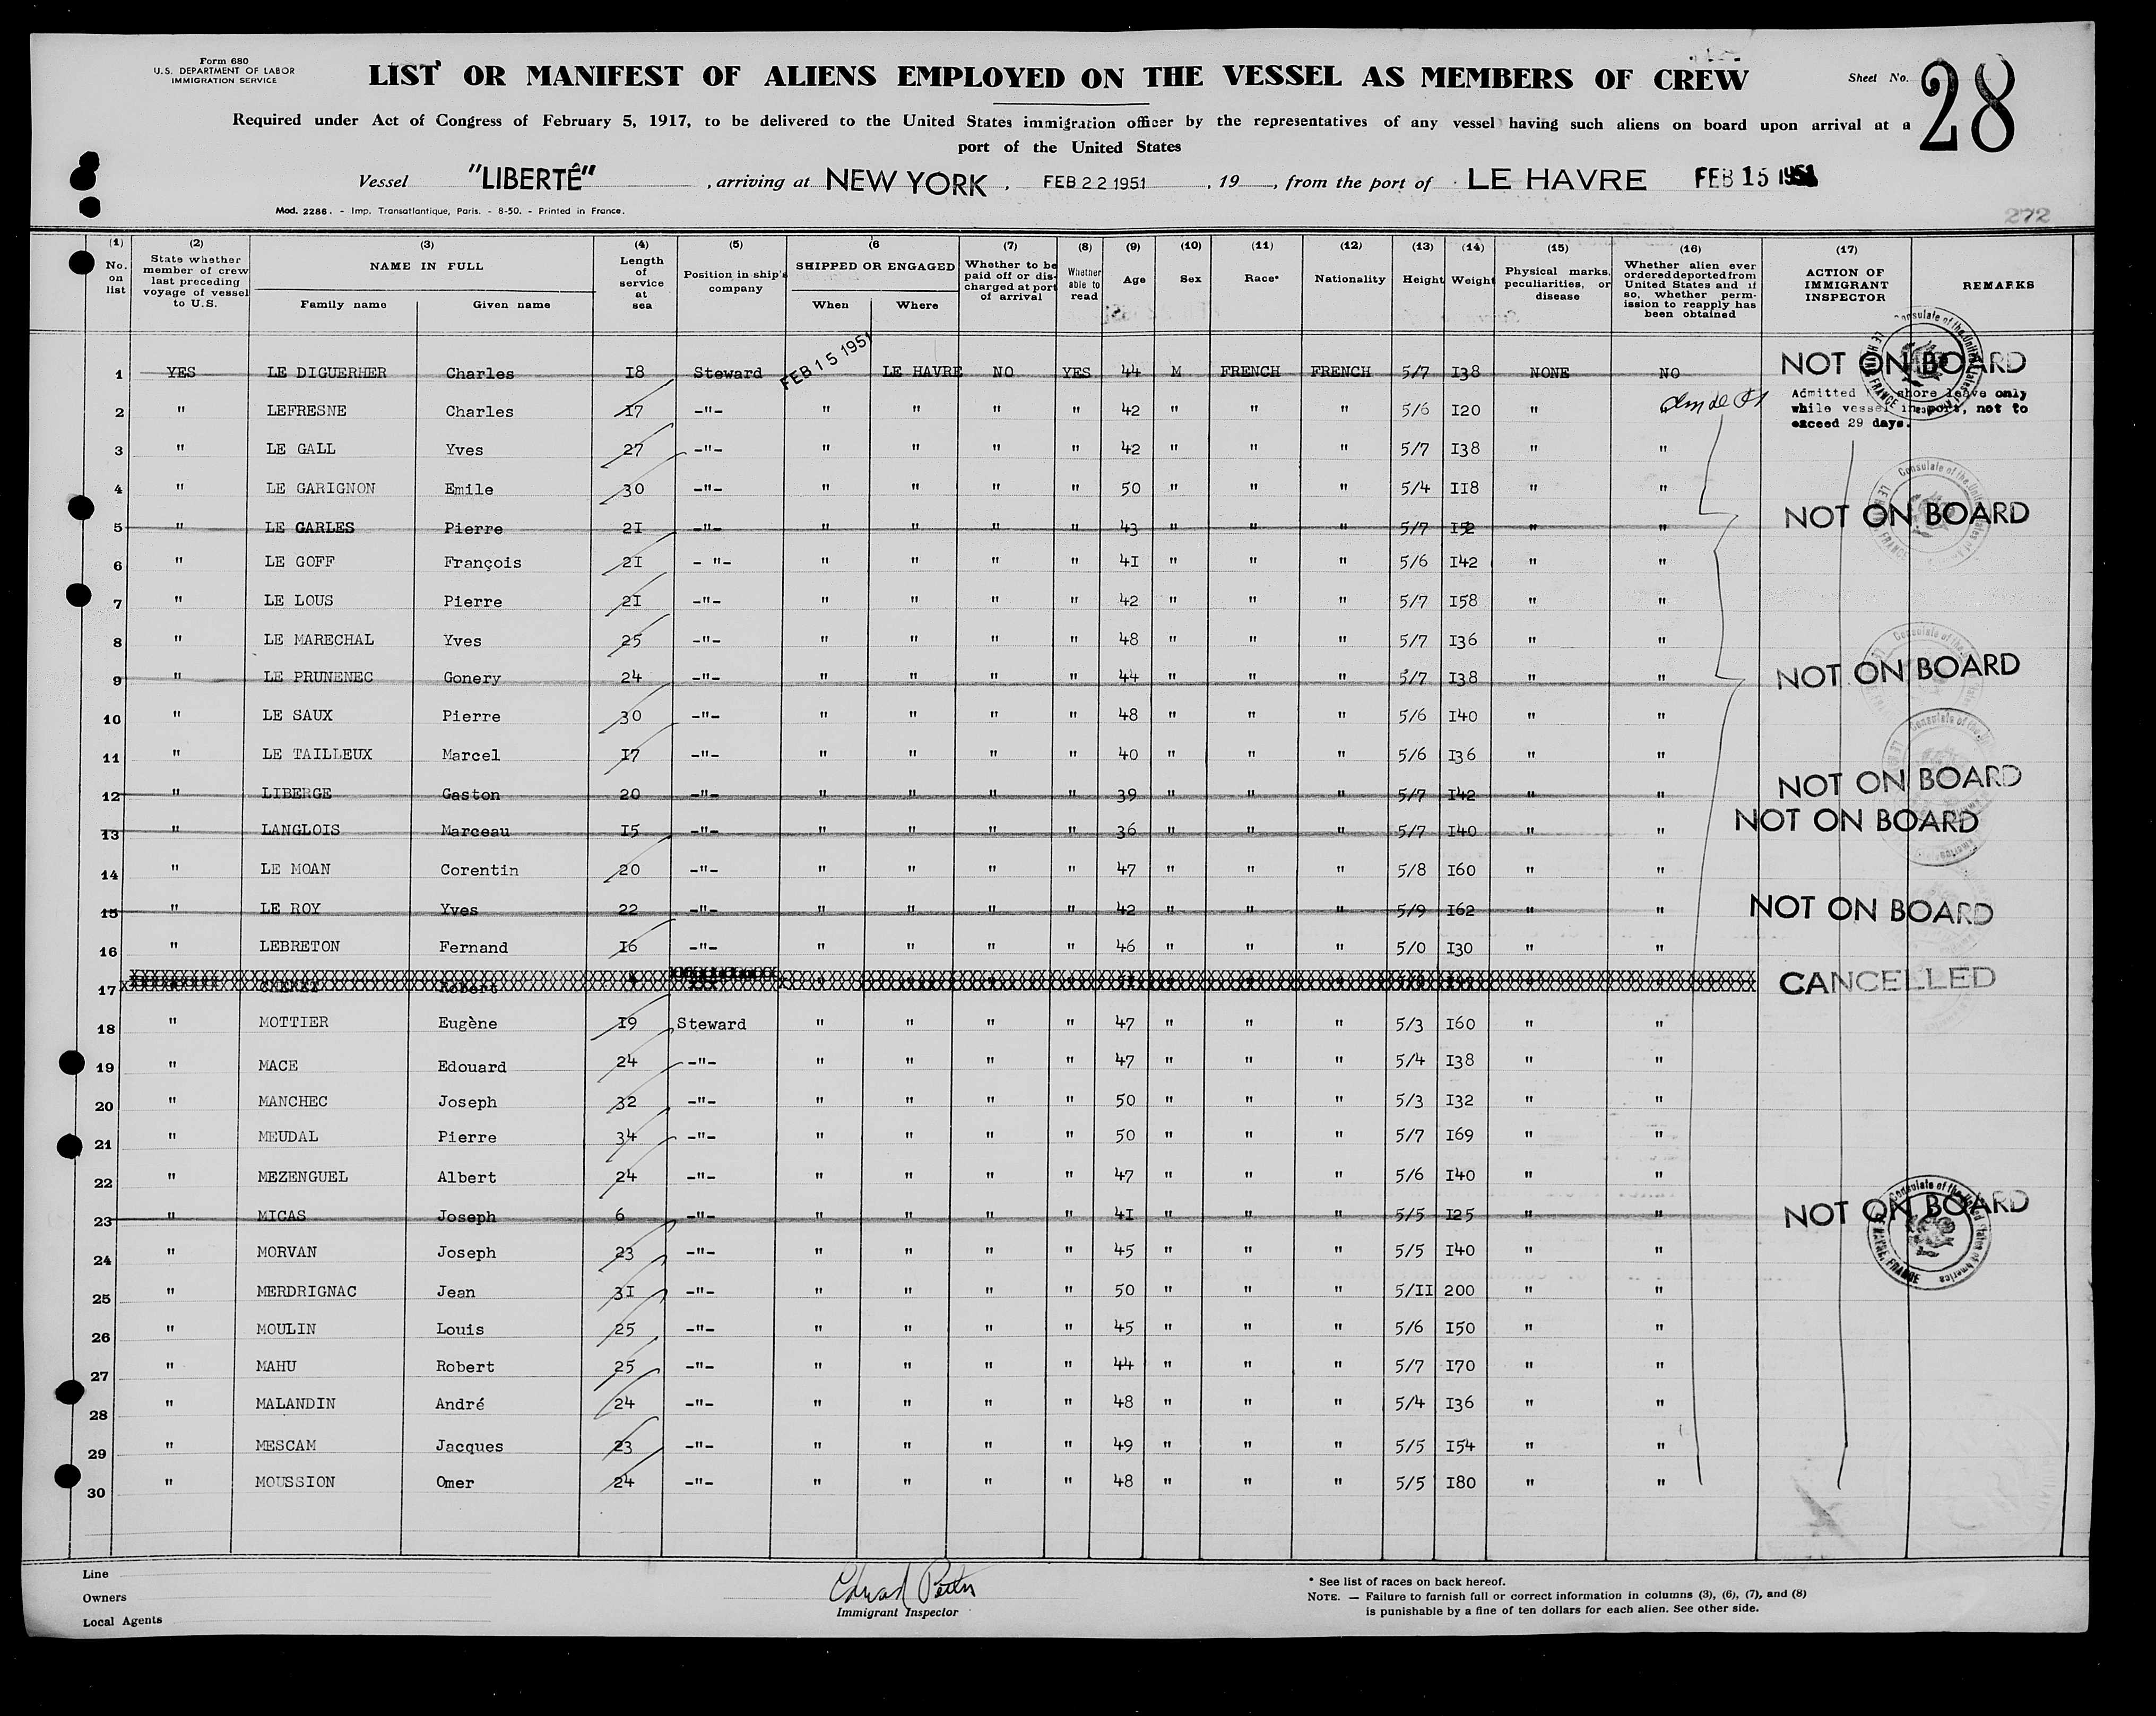 Form 680
U.S. DEPARTMENT OF LABOR
IMMIGRATION SERVICE
LIST OR MANIFEST OF ALIENS EMPLOYED ON THE VESSEL AS MEMBERS OF CREW
Sheet No. 28
Required under Act of Congress of February 5, 1917, to be delivered to the United States immigration officer by the representatives of any vessel having such aliens on board upon arrival at a
port of the United States
Vessel "LIBERTÊ", arriving at NEW YORK, FEB 22 1951, 19, from the port of LE HAVRE FEB 15 1951
Mod. 2286. - Imp. Transatlantique, Paris. - 8-50. - Printed in France.
272
(1) No. on list (2) State whether member of crew last preceding voyage of vessel to U.S. (3) NAME IN FULL Family name Given name (4) Length of service at sea (5) Position in ship's company (6 SHIPPED OR ENGAGED When Where (7) Whether to be paid off or discharged at port of arrival (8) Whether able to read (9) Age (10) Sex (11) Race* (12) Nationality (13) Height (14) Weight (15) Physical marks, peculiarities, or disease (16) Whether alien ever ordered deported from United States and if so, whether permission to reapply has been obtained (17) ACTION OF IMMIGRANT INSPECTOR REMARKS
1 YES LE DIGUERHER Charles I8 Steward FEB 15 1951 LE HAVRE NO YES 44 M FRENCH FRENCH 5/7 I38 NONE NO NOT ON BOARD
2 " LEFRESNE Charles I7 -"- " " " " 42 " " " 5/6 I20 " Admitted shore leave only
while vessel in port, not to
exceed 29 days.
3 " LE GALL Yves 27 -"- " " " " 42 " " " 5/7 I38 " "
4 " LE GARIGNON Emile 30 -"- " " " " 50 " " " 5/4 II8 " "
5 " LE GARLES Pierre 2I -"- " " " " 43 " " " 5/7 I52 " " NOT ON BOARD
6 " LE GOFF François 2I - "- " " " " 4I " " " 5/6 I42 " "
7 " LE LOUS Pierre 2I -"- " " " " 42 " " " 5/7 I58 " "
8 " LE MARECHAL Yves 25 -"- " " " " 48 " " " 5/7 I36 " "
9 " LE PRUNENEC Gonery 24 -"- " " " " 44 " " " 5/7 I38 " " NOT ON BOARD
10 " LE SAUX Pierre 30 -"- " " " " 48 " " " 5/6 I40 " "
11 " LE TAILLEUX Marcel I7 -"- " " " " 40 " " " 5/6 I36 " "
12 " LIBERGE Gaston 20 -"- " " " " 39 " " " 5/7 I42 " " NOT ON BOARD
13 " LANGLOIS Marceau I5 -"- " " " " 36 " " " 5/7 I40 " " NOT ON BOARD
14 " LE MOAN Corentin 20 -"- " " " " 47 " " " 5/8 I60 " "
15 " LE ROY Yves 22 -"- " " " " 42 " " " 5/9 I62 " " NOT ON BOARD
16 " LEBRETON Fernand I6 -"- " " " " 46 " " " 5/0 I30 " "
17 Robert CANCELLED
18 " MOTTIER Eugène I9 Steward " " " " 47 " " " 5/3 I60 " "
19 " MACE Edouard 24 -"- " " " " 47 " " " 5/4 I38 " "
20 " MANCHEC Joseph 32 -"- " " " " 50 " " " 5/3 I32 " "
21 " MEUDAL Pierre 34 -"- " " " " 50 " " " 5/7 I69 " "
22 " MEZENGUEL Albert 24 -"- " " " " 47 " " " 5/6 I40 " "
23 " MICAS Joseph 6 -"- " " " " 4I " " " 5/5 I25 " " NOT ON BOARD
24 " MORVAN Joseph 23 -"- " " " " 45 " " " 5/5 I40 " "
25 " MERDRIGNAC Jean 3I -"- " " " " 50 " " " 5/II 200 " "
26 " MOULIN Louis 25 -"- " " " " 45 " " " 5/6 I50 " "
27 " MAHU Robert 25 -"- " " " " 44 " " " 5/7 I70 " "
28 " MALANDIN André 24 -"- " " " " 48 " " " 5/4 I36 " "
29 " MESCAM Jacques 23 -"- " " " " 49 " " " 5/5 I54 " "
30 " MOUSSION Omer 24 -"- " " " " 48 " " " 5/5 I80 " "
Consulate of the United States of America
LE HAVRE, FRANCE
Line
Owners
Local Agents
Immigrant Inspector
* See list of races on back hereof.
NOTE. — Failure to furnish full or correct information in columns (3), (6), (7), and (8)
is punishable by a fine of ten dollars for each alien. See other side.